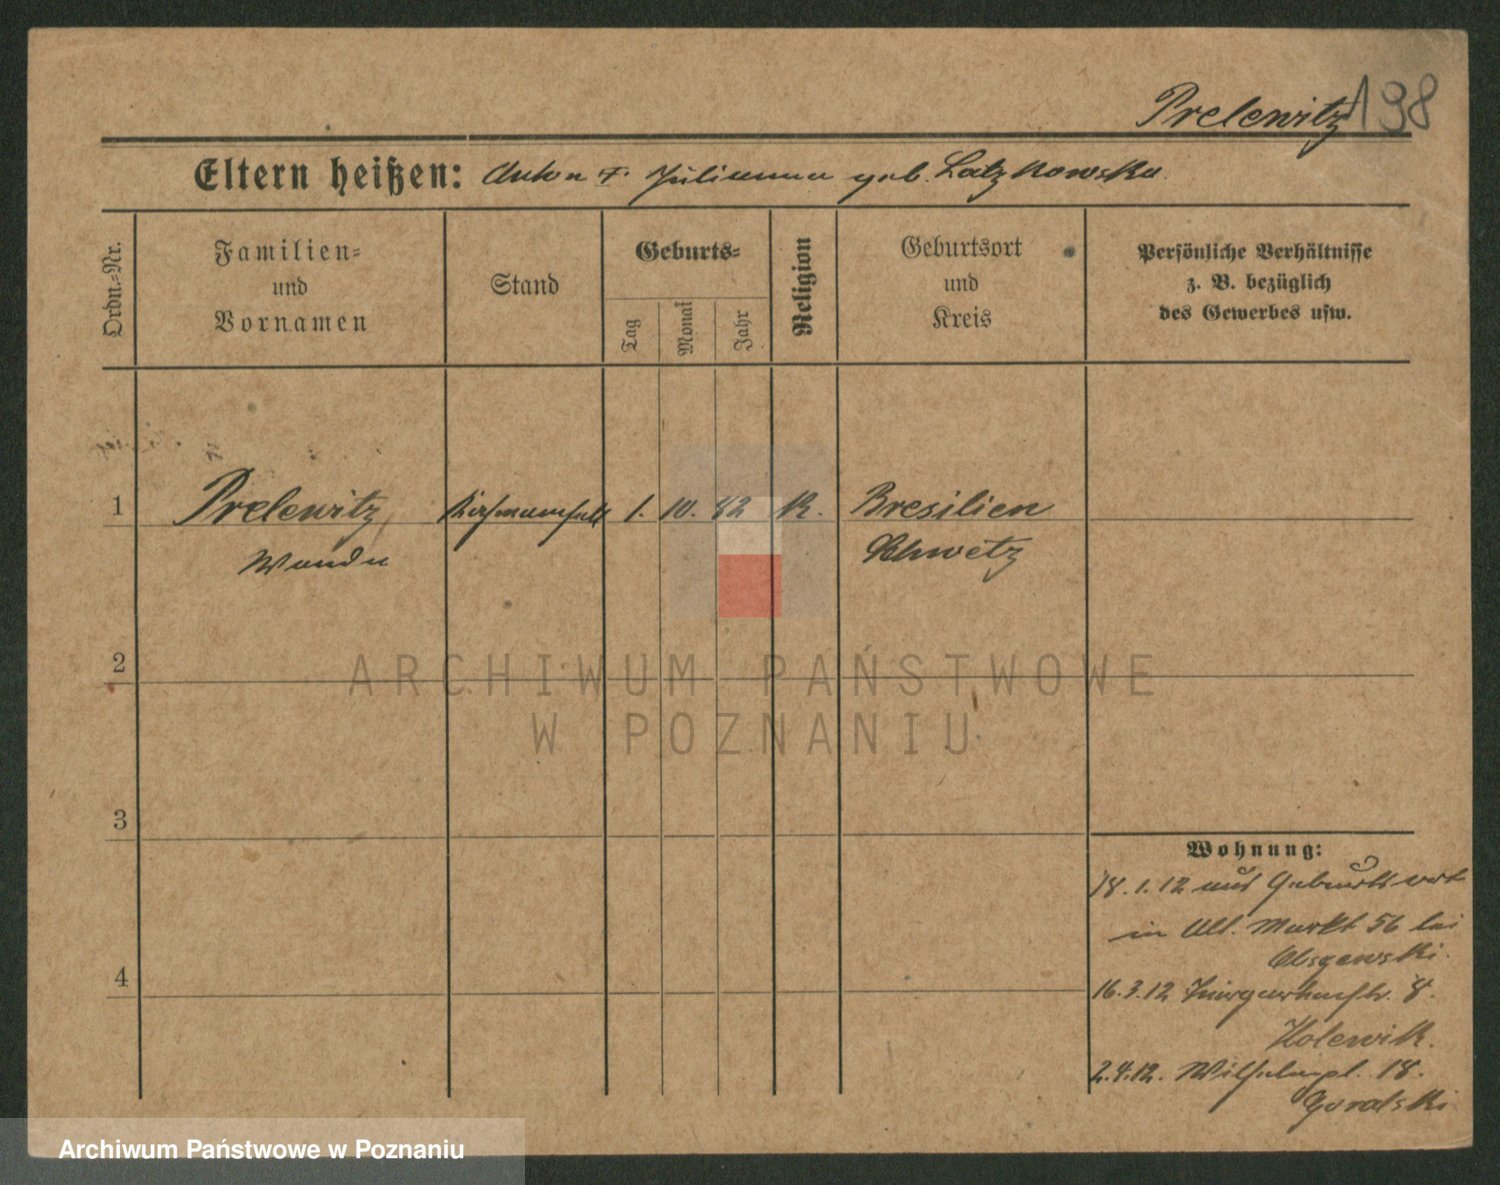 Prelewitz 198
Eltern heißen: Anton u. Julianna geb. Latzkowska.
Ordn.-Nr.
Familien-
und
Vornamen
Stand
Geburts-
Tag
Monat
Jahr
Religion
Geburtsort
und
Kreis
Persönliche Verhältnisse
z. B. bezüglich
des Gewerbes usw.
1
Prelewitz, 1. 10. 82 K. Bresilien
Wanda Schwetz
2
3
4
ARCHIWUM PAŃSTWOWE
W POZNANIU
Wohnung:
18.1.12 aus Geburtsort
in Alt. Markt 56 bei
16.3.12 8.
Holewik.
2.4.12. Wilhelmpl. 18.
Goralski
Archiwum Państwowe w Poznaniu